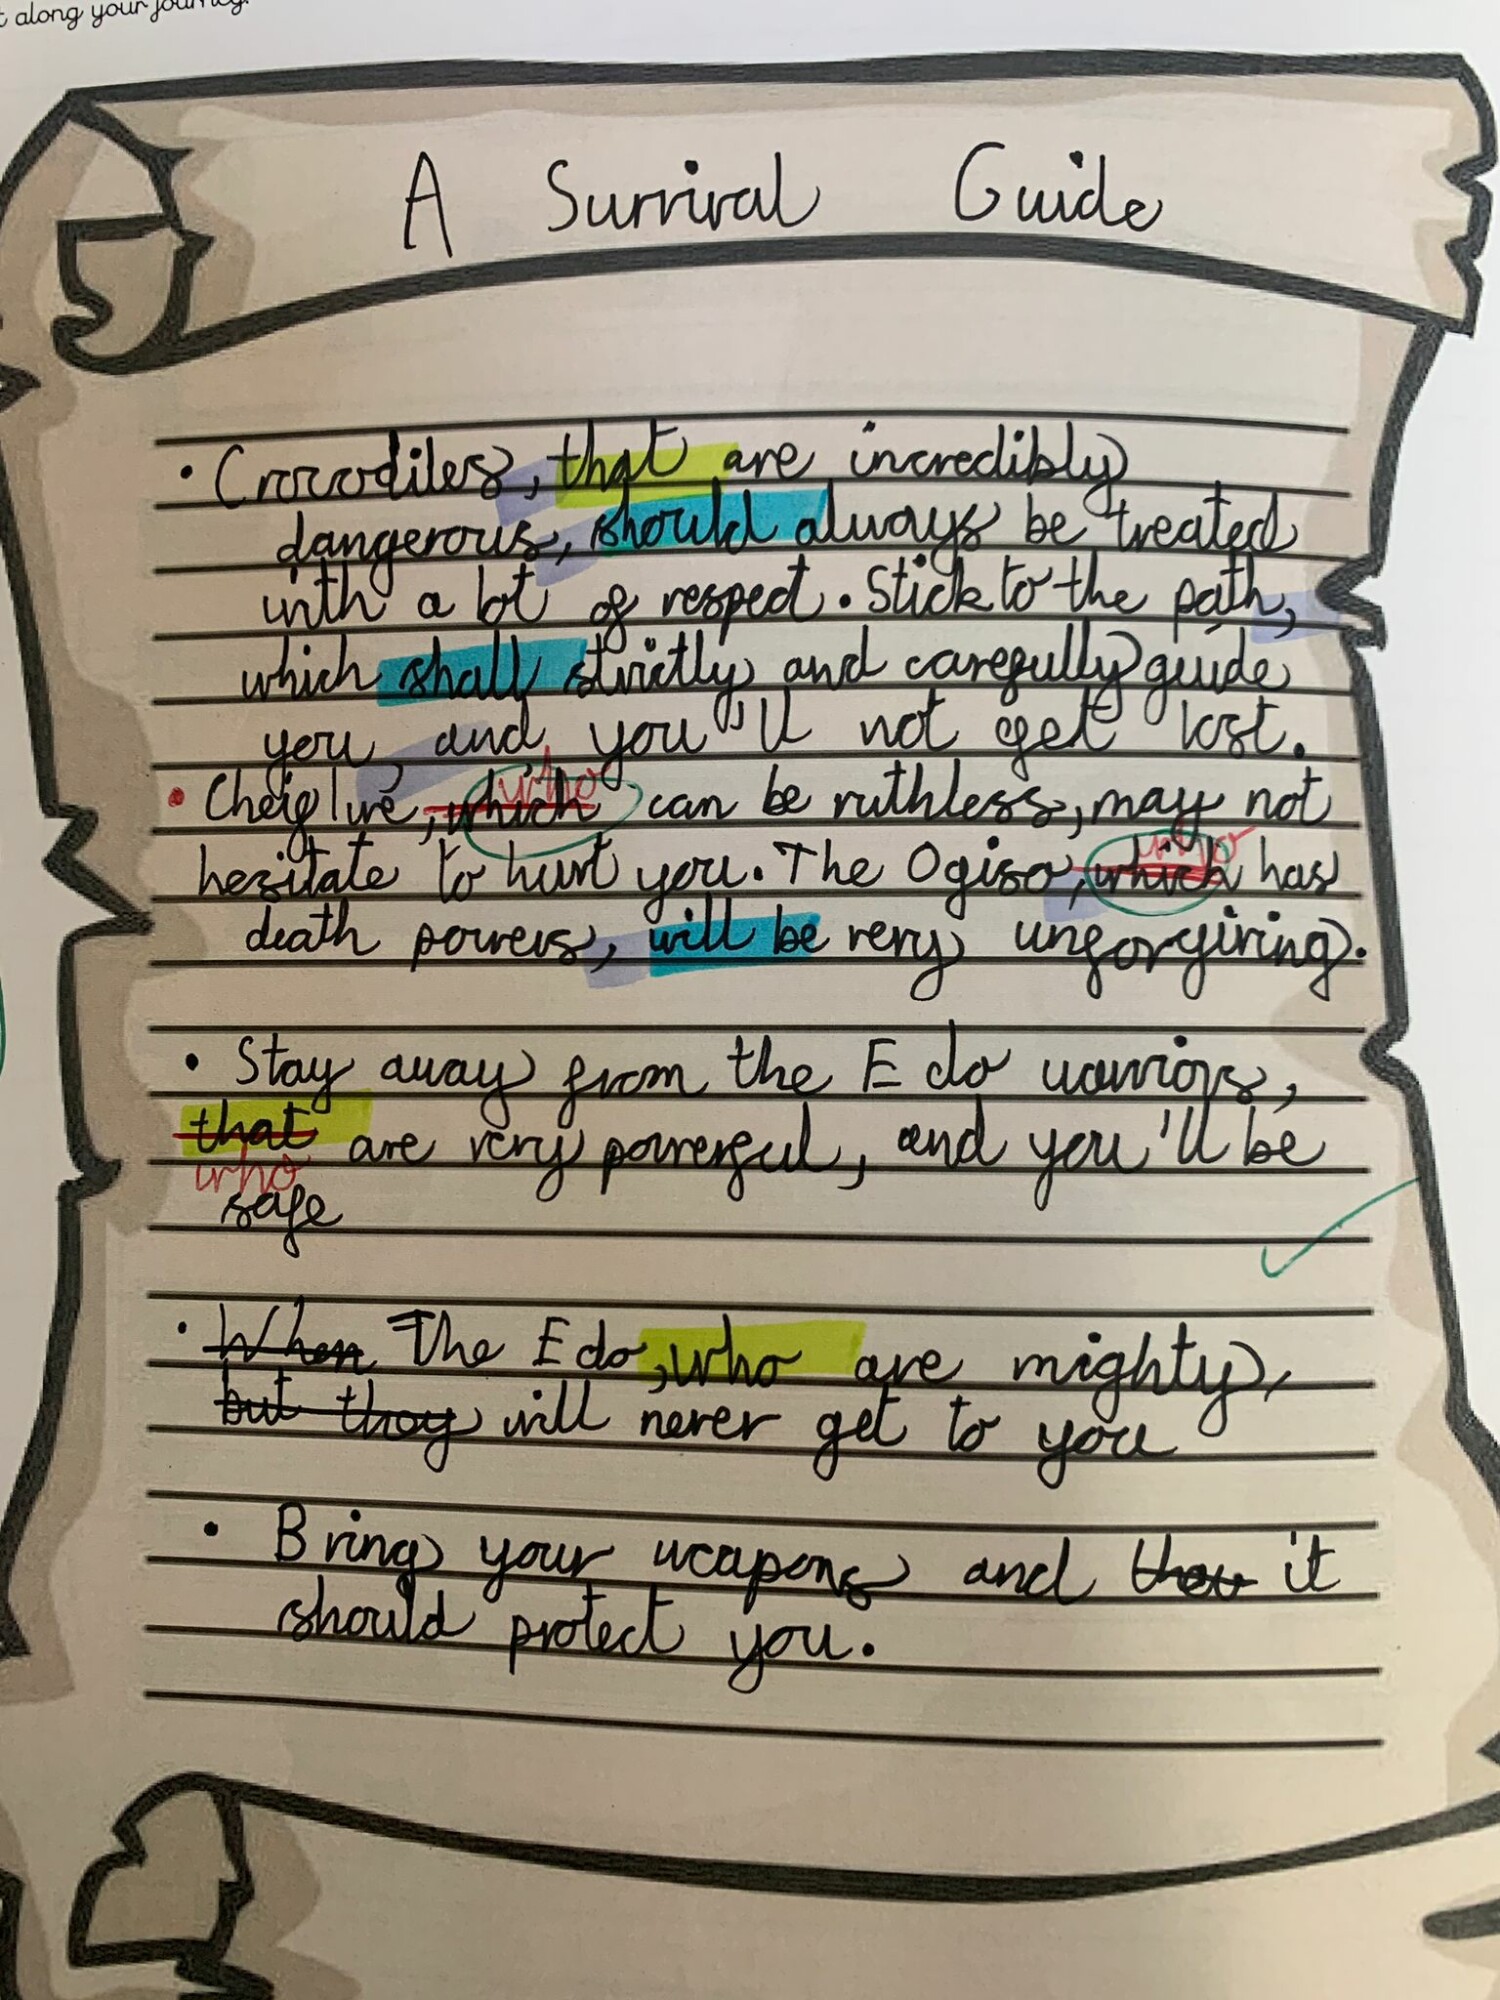 t along your journey.
A Survival Guide
• Crocodiles, that are incredibly
dangerous, should always be treated
with a lot of respect. Stick to the path,
which shall strictly and carefully guide
you, and you'll not get lost.
who
• , which can be ruthless, may not
who
hesitate to hurt you. The Ogiso, which has
death powers, will be very unforgiving.
• Stay away from the Edo warriors,
that are very powerful, and you'll be
who
safe
• When The Edo, who are mighty,
but they will never get to you
• Bring your weapons and it
should protect you.